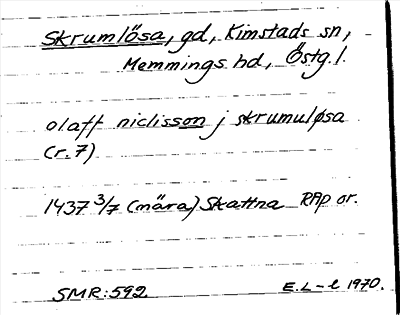 Skrumlösa, gd, Kimstads sn,
Memmings hd, Östg.l.
olaff niclisson j skrumuløsa
(r.7)
1437 3/7 (nära) Skattna RAp or.
SMR:592 E.L-l 1970.